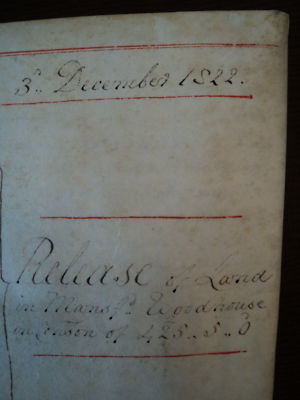 3d. December 1822.
Release of Land
in Mansfd. Woodhouse
in Conson of £25..5..0